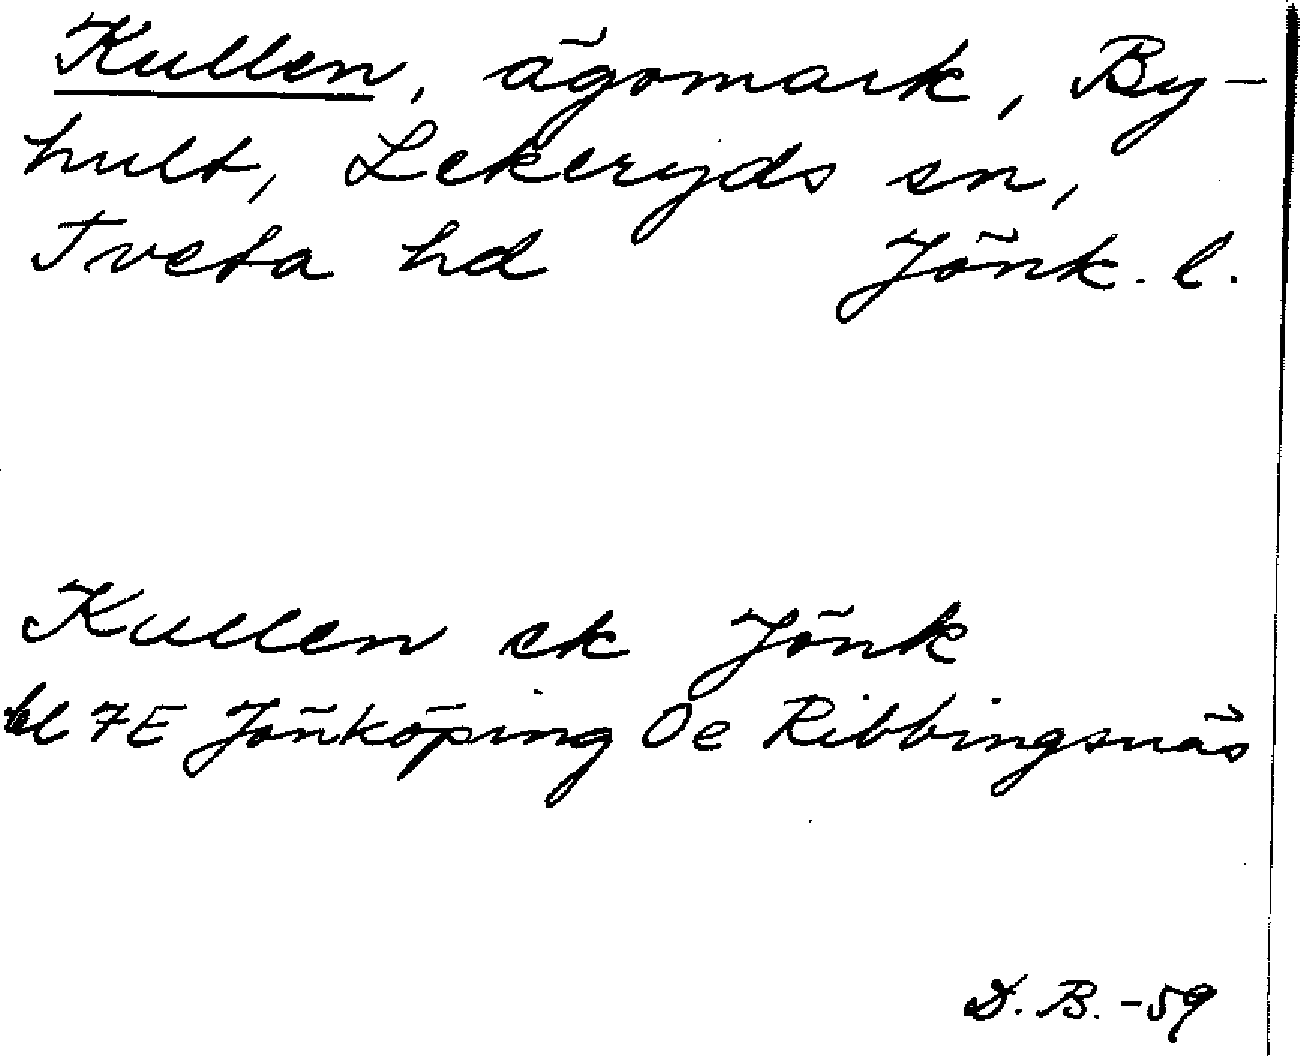 Kullen, ägomark, By-
hult, Lekeryds sn,
Tveta hd Jönk. l.
Kullen ek Jönk
bl 7E Jönköping 0e Ribbingsnäs
D. B. -59